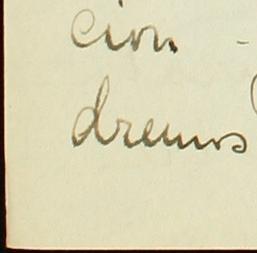 cion -
dremos